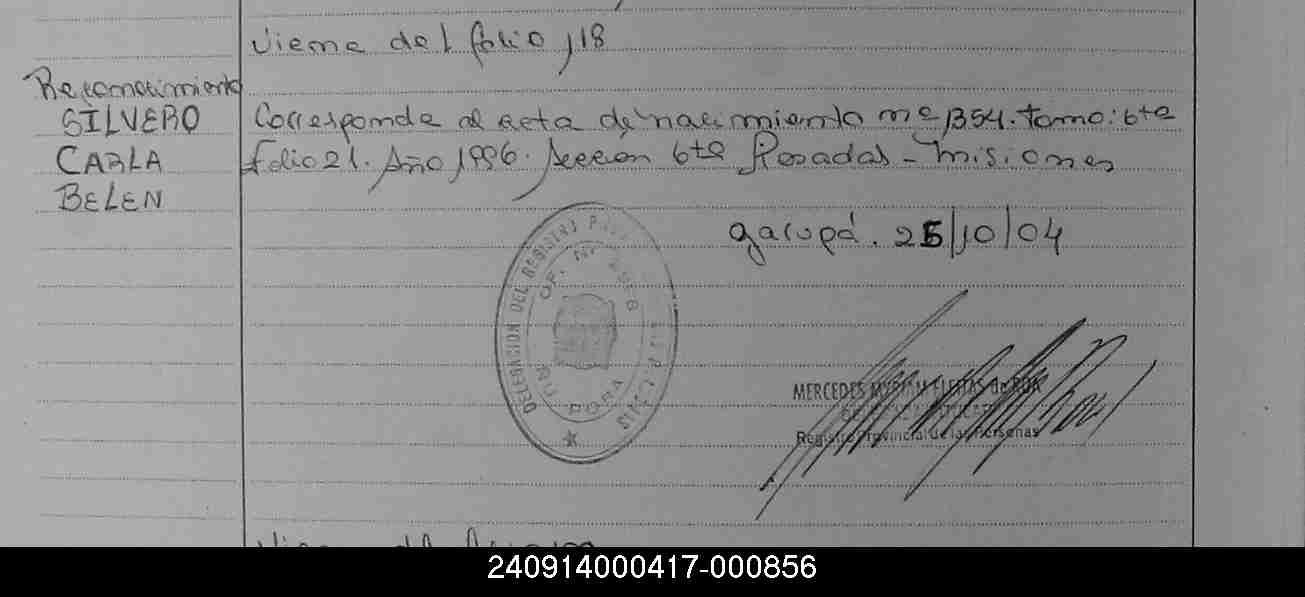 Viene del folio 118
Reconocimiento
SILVERO
CARLA
BELEN
Corresponde al acta de nacimiento nº 1354. Tomo: 6to
folio 21. Año 1996. Sección 6ta Posadas - Misiones
Garupá. 25/10/04
DELEGACION DEL REGISTRO
OF.
ÑU PORA
MERCEDES MYRIAM FLEITAS de ROA
Registro Provincial de las Personas
240914000417-000856